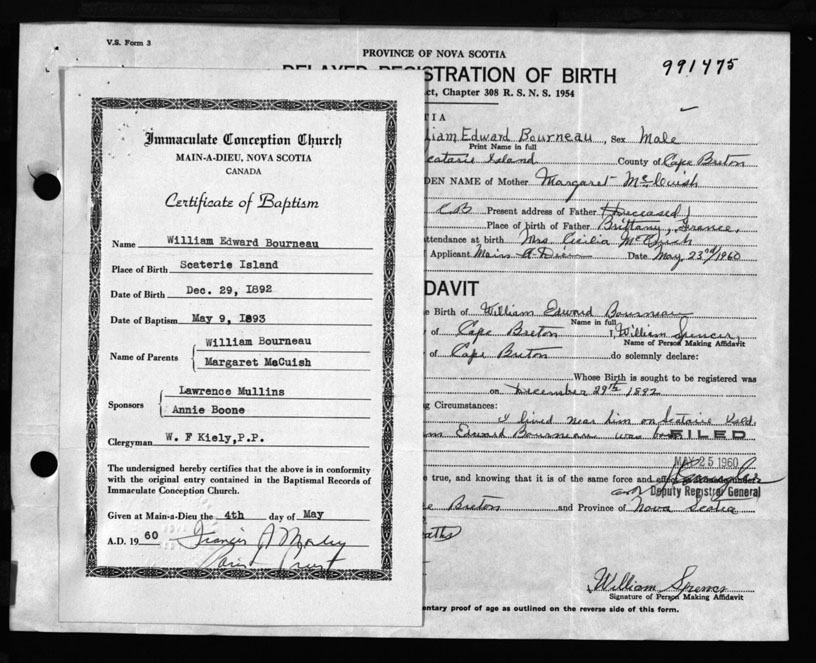 V.S. Form 3
PROVINCE OF NOVA SCOTIA
DELAYED REGISTRATION OF BIRTH
991475
ct, Chapter 308 R. S. N. S. 1954
TIA
liam Edward Bourneau, Sex Male
Print Name in full
catarie Island County of Cape Breton
DEN NAME of Mother Margaret McCuish
CB Present address of Father (Deceased)
Place of birth of Father Brittany, France.
ttendance at birth Mrs. Cecilia McCuish
Applicant Main-A-Dieu Date May 23rd/1960
DAVIT
e Birth of William Edward Bourneau
Name in full
of Cape Breton I, William Spencer,
Name of Person Making Affidavit
of Cape Breton do solemnly declare:
Whose Birth is sought to be registered was
on December 29th 1892
ng Circumstances:
I lived near him on Scatarie
m Edward Bourneau was
FILED
MAY 25 1960
e true, and knowing that it is of the same force and
Deputy Registrar General
e Breton and Province of Nova Scotia
William Spencer
Signature of Person Making Affidavit
entary proof of age as outlined on the reverse side of this form.
Immaculate Conception Church
MAIN-A-DIEU, NOVA SCOTIA
CANADA
Certificate of Baptism
Name William Edward Bourneau
Place of Birth Scaterie Island
Date of Birth Dec. 29, 1892
Date of Baptism May 9, 1893
Name of Parents William Bourneau
Margaret McCuish
Sponsors Lawrence Mullins
Annie Boone
Clergyman W. F Kiely,P.P.
The undersigned hereby certifies that the above is in conformity
with the original entry contained in the Baptismal Records of
Immaculate Conception Church.
Given at Main-a-Dieu the 4th day of May
A.D. 19 60 Francis A Morley
Parish Priest